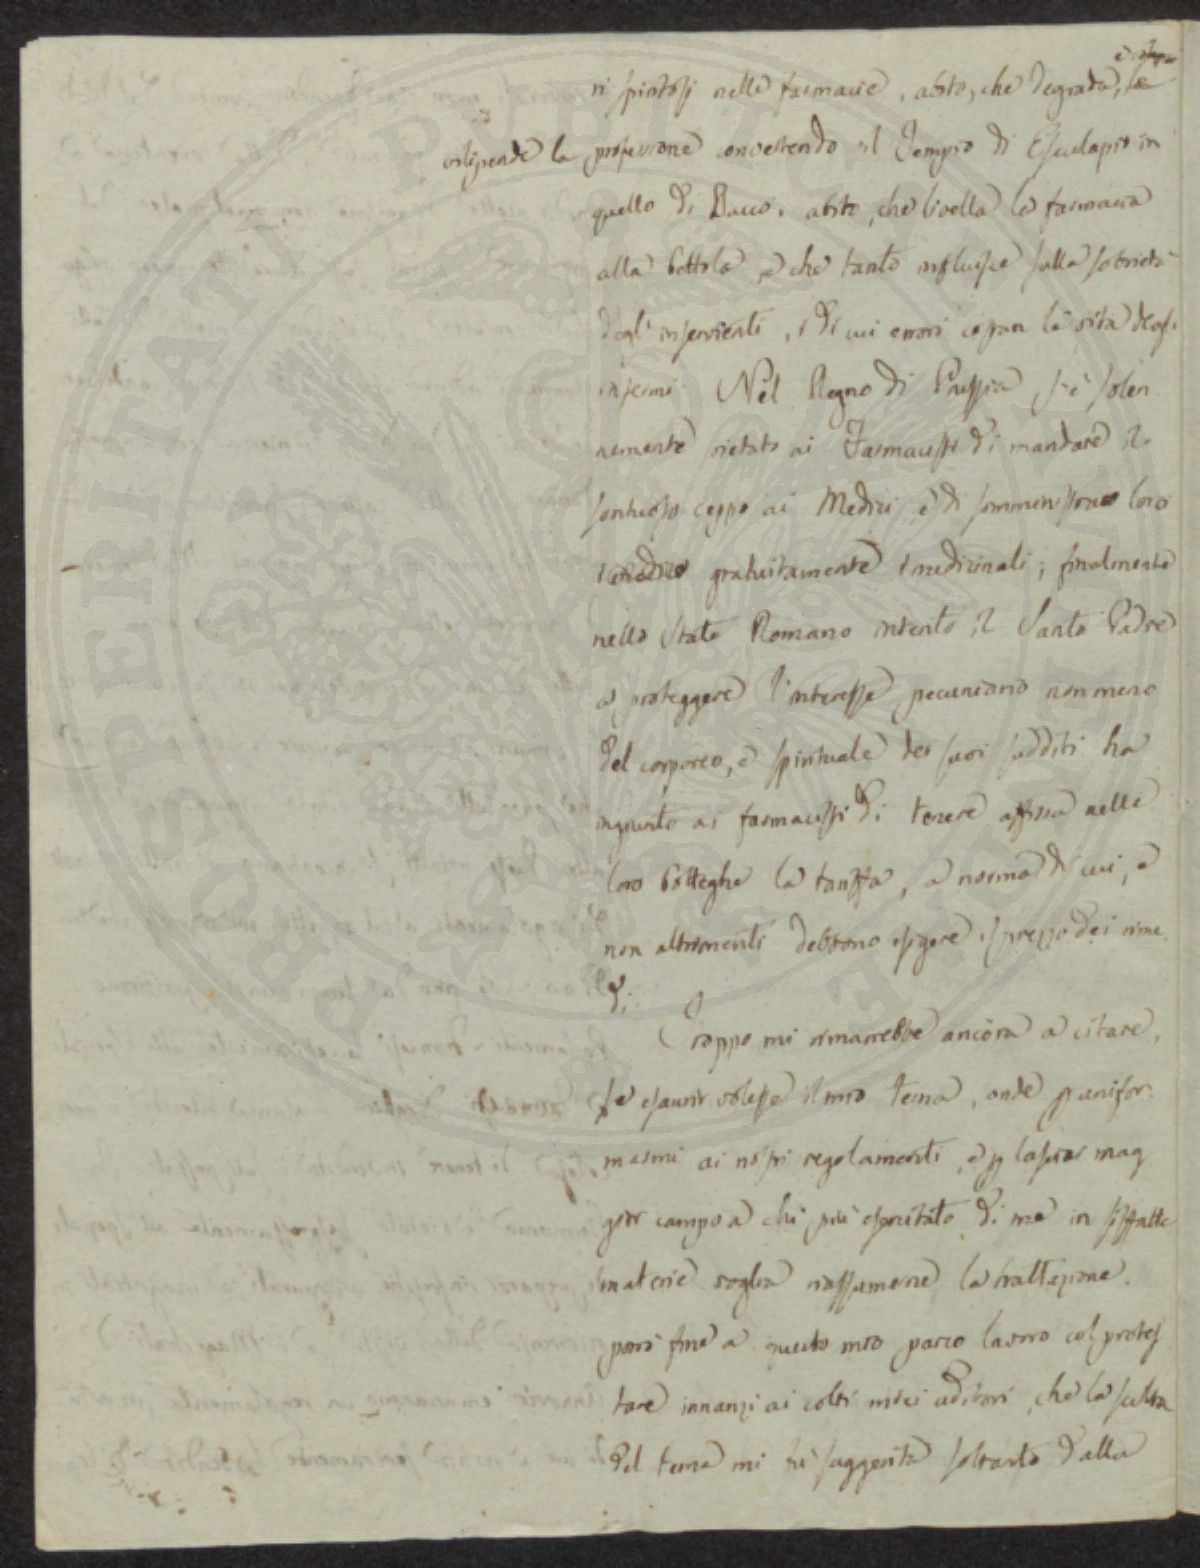 ri spiritosi nelle farmacie, abito, che degrada, e
vilipende la professione convertendo il Tempio di Esculapio in
quello di Bacco, abito, che livella la farmacia
alla bettola, e che tanto influisce sulla sobrietà
degl' inservienti, i di cui errori costan la vita degl'
infermi. Nel Regno di Prussia, si è solen
nemente vietato ai Farmacisti di mandare il
sontuoso ceppo ai Medici, e di somministrar loro
gratuitamente i medicinali; finalmente
nello Stato Romano intento il Santo Padre
a proteggere l'interesse pecuniario non meno
del corporeo, e spirituale dei suoi sudditi ha
ingiunto ai farmacisti di tenere affissa nelle
loro botteghe la tariffa, a norma di cui, e
non altrimenti debbono esigere il prezzo dei rime
di.
Troppo mi rimarrebbe ancora a citare,
se esaurir volessi il mio tema, onde p unifor
marmi ai nostri regolamenti, e p lasciar mag
gior campo a chi più esperitato di me in siffatte
materie voglia riassumere la trattazione.
porrò fine a questo mio parco lavoro col protes
tare innanzi ai colti miei uditori, che la scelta
del tema mi fù suggerita soltanto dalla
PROSPERITATI PUBLICAE